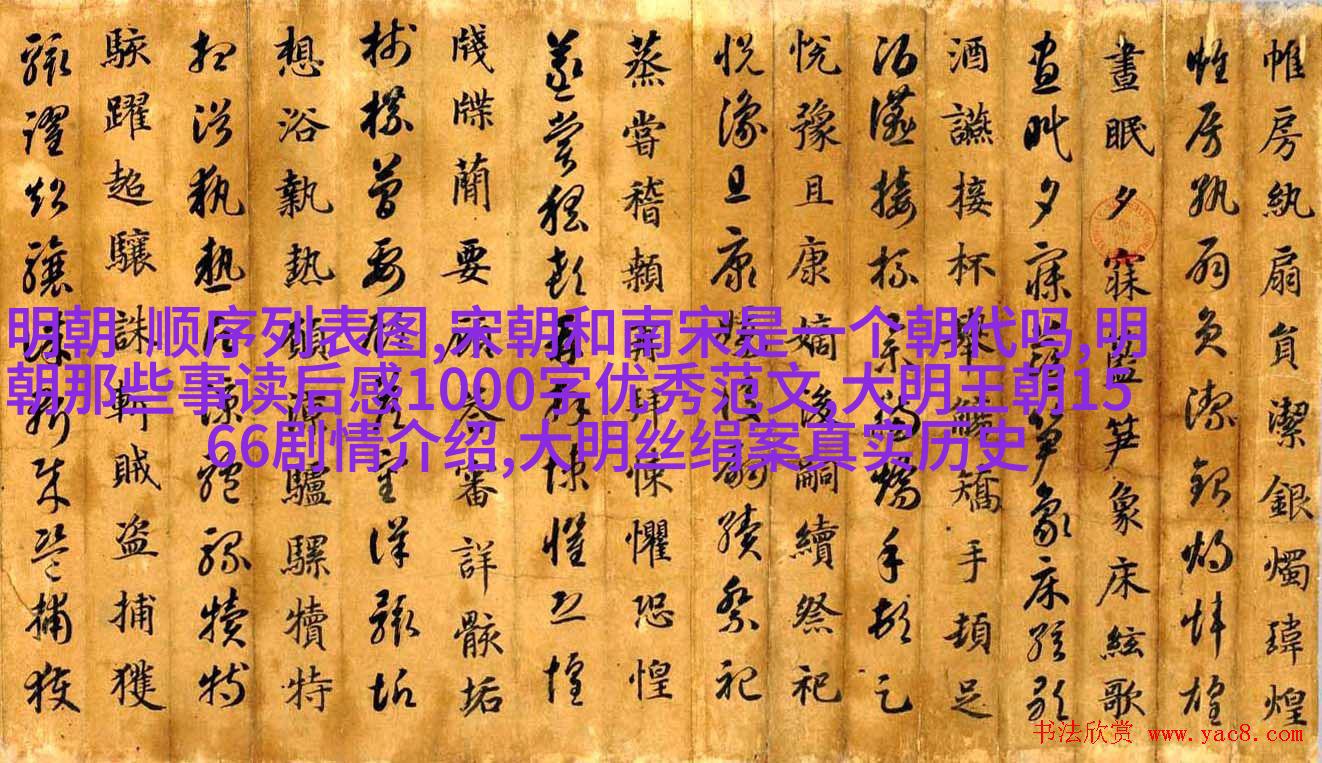 帷房紈扇員潔銀燭瑋煌
帷房紈扇員潔銀燭瑋煌
晝眠夕寐藍笋象床絃歌
晝眠夕寐藍笋象床絃歌
酒讌接杯舉觴矯手頓足
酒讌接杯舉觴矯手頓足
悅豫且康嫡後嗣續祭祀
悅豫且康嫡後嗣續祭祀
蒸嘗稽顙再拜悚懼恐惶
蒸嘗稽顙再拜悚懼恐惶
牋牒簡要顧答審詳骸垢
牋牒簡要顧答審詳骸垢
想浴執熱願涼驢騾犢特
想浴執熱願涼驢騾犢特
駭躍超驤誅斬賊盜捕獲
駭躍超驤誅斬賊盜捕獲
明朝 顺序列表图,宋朝和南宋是一个朝代吗,明
朝那些事读后感1000字优秀范文,大明王朝15
66剧情介绍,大明丝绢案真实历史
书法欣赏 www.yac8.com